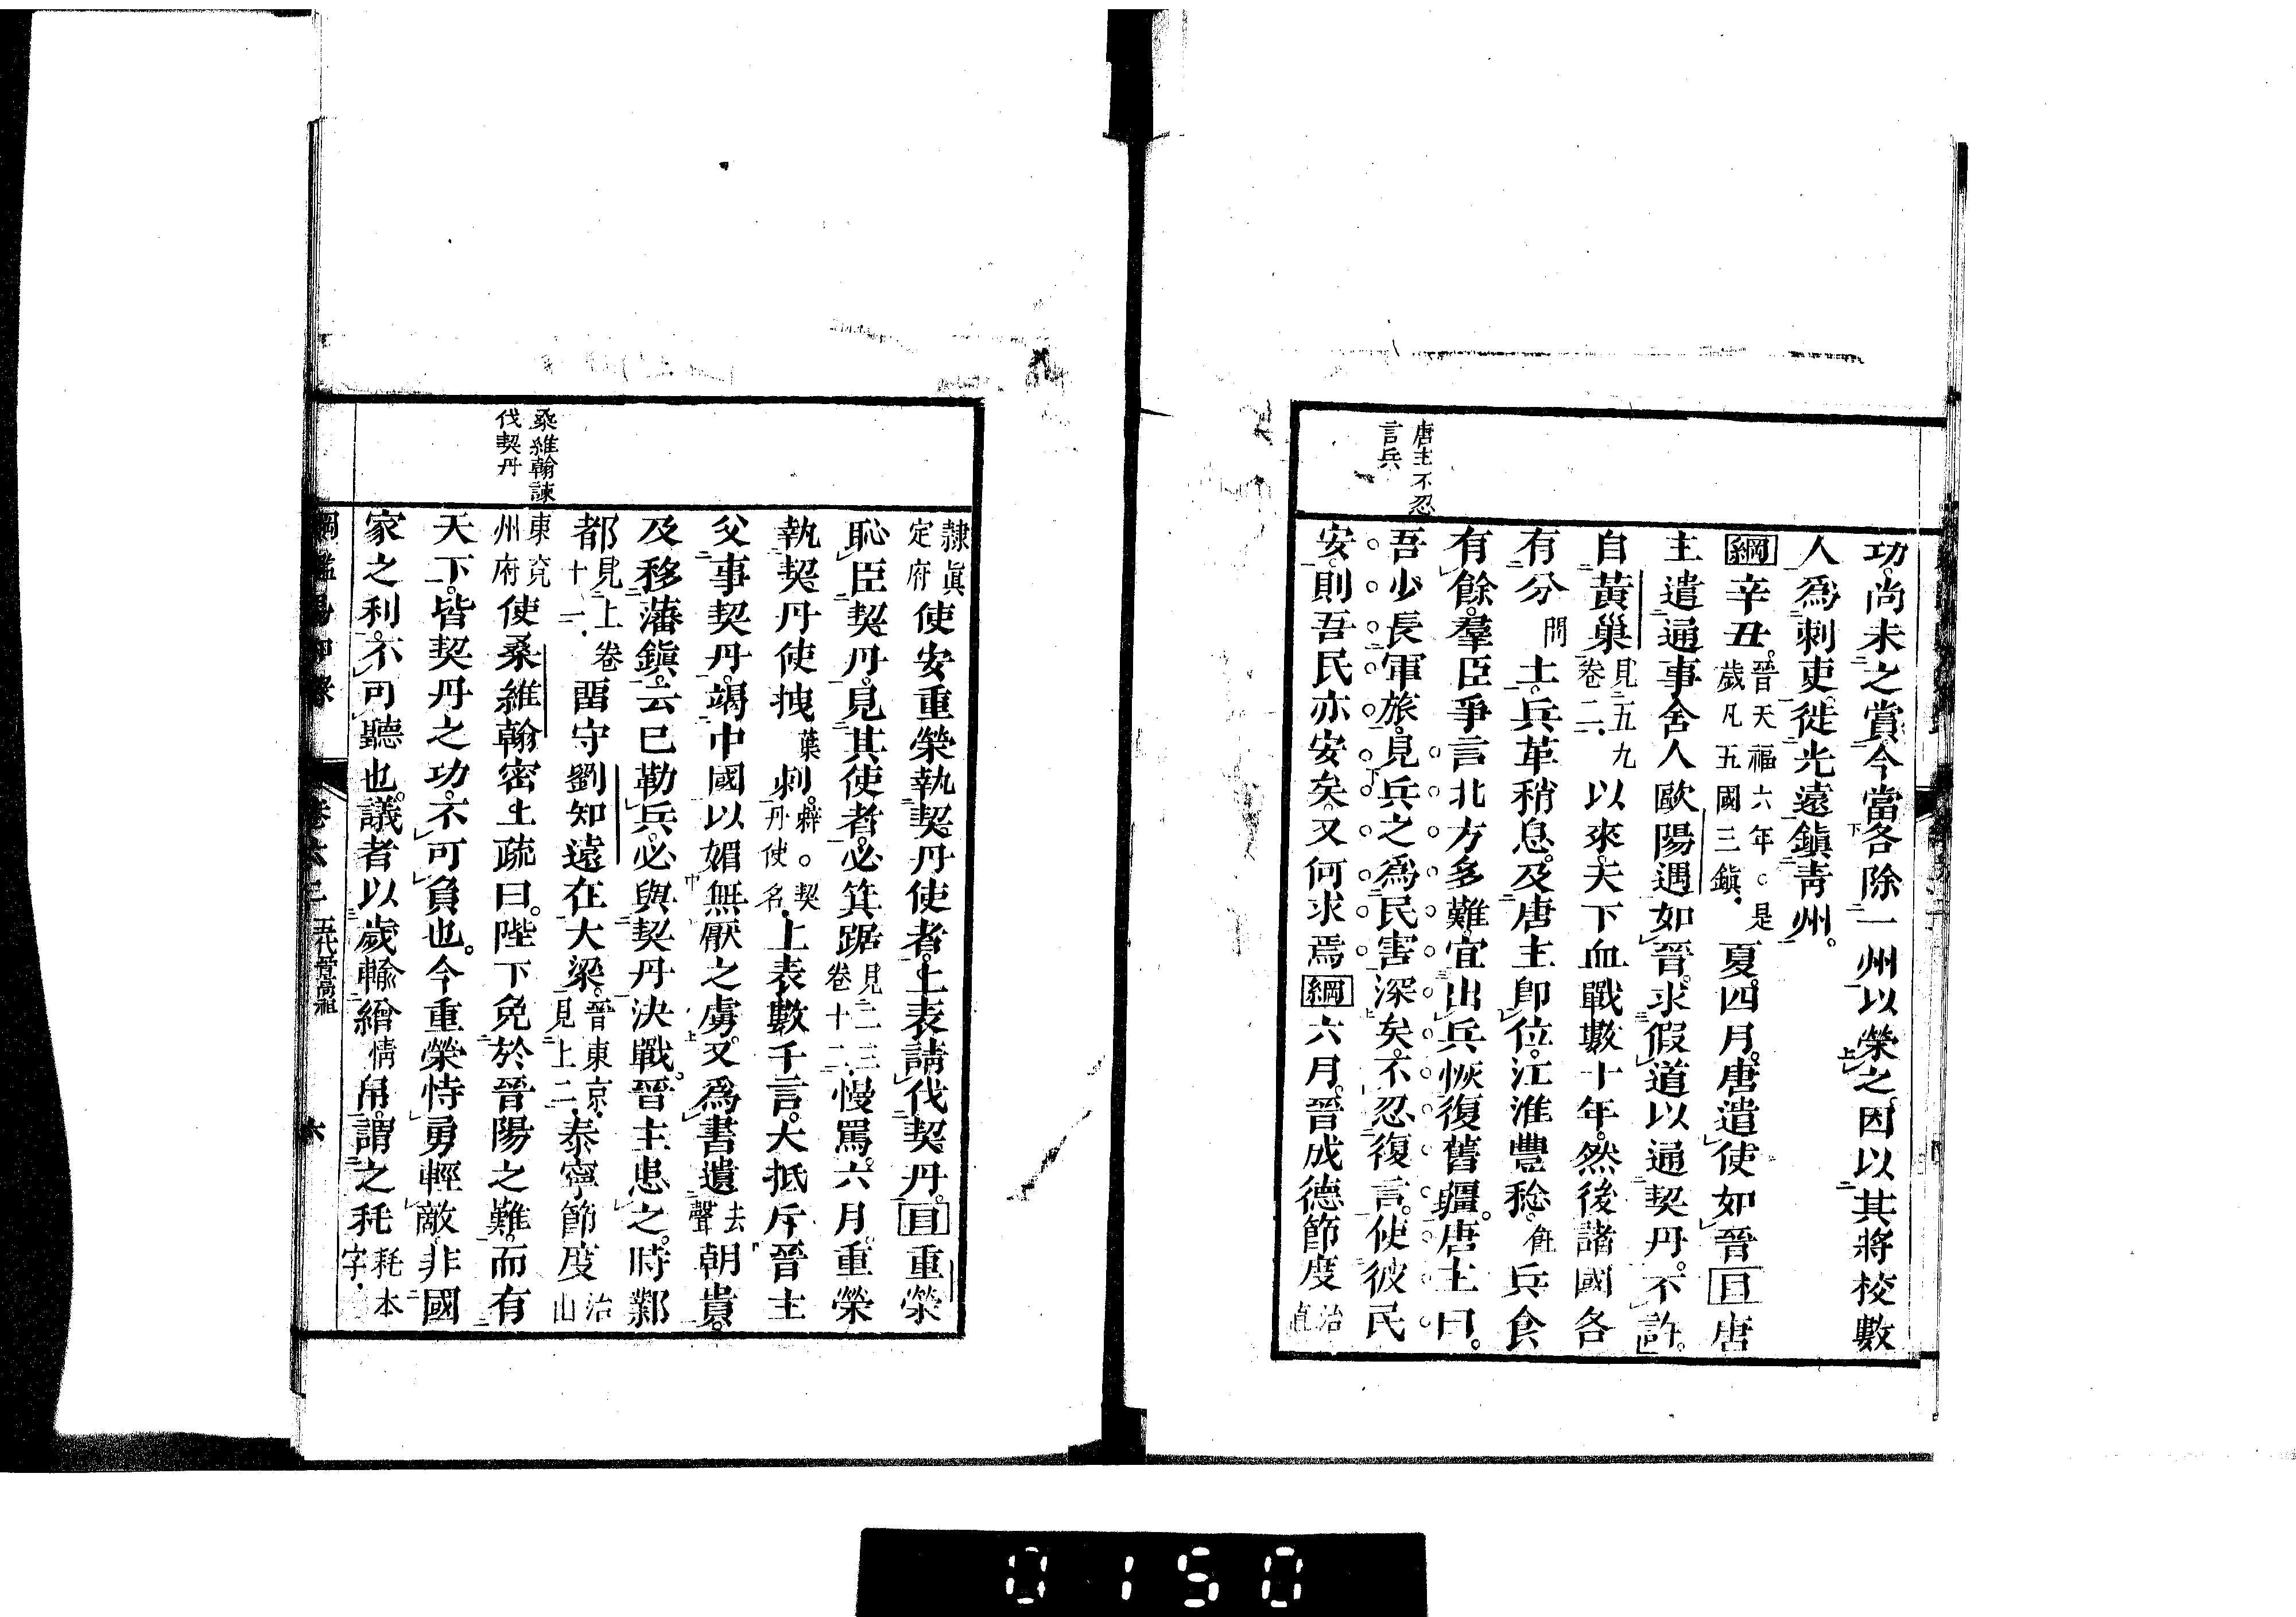 唐主不忍
言兵
功。尚未之賞。今當各除一州以榮之。因以其將校數
人爲刺吏。徙光遠鎭靑州。
綱辛丑。晉天福六年。○是歲凡五國三鎭。夏。四月。唐遣使如晉目唐
主遣通事舍人歐陽遇如晉。求假道以通契丹。不許。
自黃巢見五九卷二。以來。天下血戰數十年。然後諸國各
有分問土。兵革稍息。及唐主卽位。江淮豐稔。飪兵食
有餘。羣臣爭言北方多難。宜出兵恢復舊疆。唐主曰。
吾少長軍旅。見兵之爲民害深矣。不忍復言。使彼民
安。則吾民亦安矣。又何求焉綱六月。晉成德節度治直
桑維翰諫
伐契丹
隷眞定府使安重榮執契丹使者。上表請伐契丹。目重榮
恥臣契丹。見其使者。必箕踞見二三卷十二。慢罵。六月。重榮
執契丹使拽葉剌。辣。○契丹使名。上表數千言。大抵斥晉主
父事契丹。竭中國以媚無厭之虜。又爲書遺去聲朝貴。
及移藩鎭。云已勒兵。必與契丹決戰。晉主患之。時鄴
都見上卷十一。畱守劉知遠在大梁。晉東京。見上二。泰寧節度治山
東兗州府使桑維翰密上疏曰。陛下免於晉陽之難。而有
天下。皆契丹之功。不可負也。今重榮恃勇輕敵。非國
家之利。不可聽也。議者以歲輸繒情帛。謂之秏耗本字。
綱鑑易知錄 卷六二 五代晉高祖 六
0150